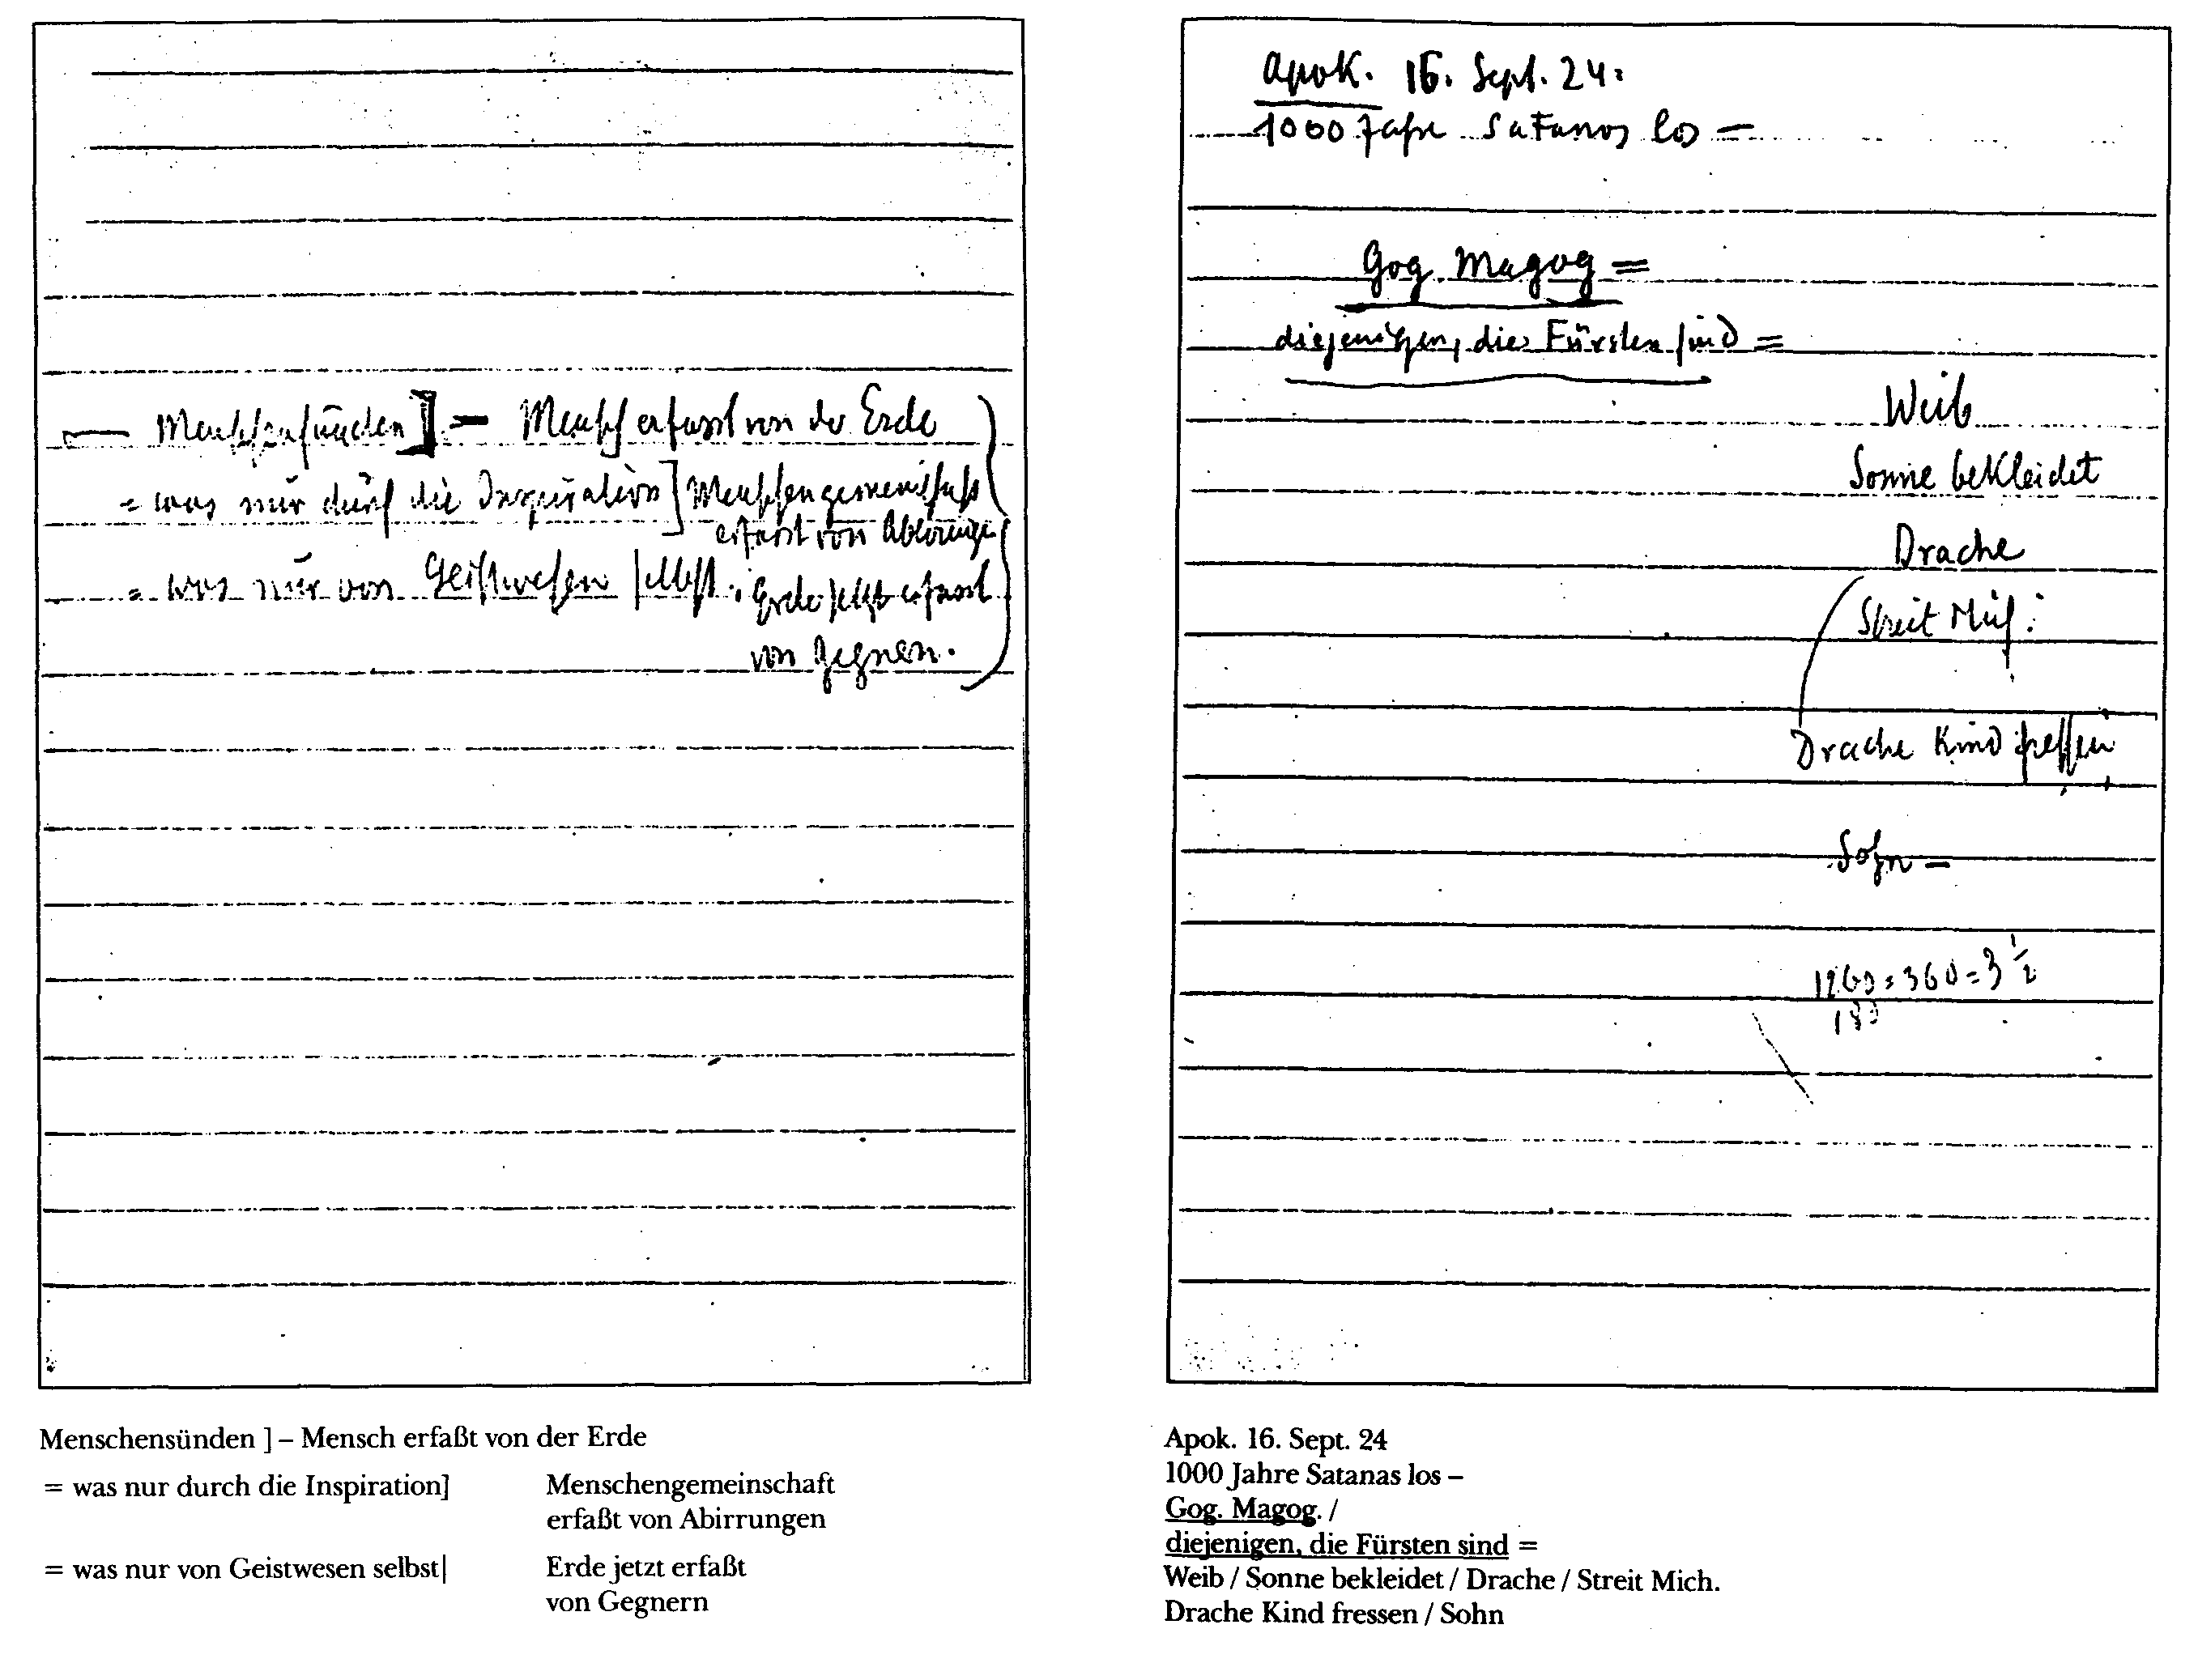 — Menschensünden ] — Mensch erfasst von der Erde
= was nur durch die Inspiration ] Menschengemeinschaft
erfasst von Abirrunge
= was nur von Geistwesen selbst. Erde jetzt erfasst
von Gegnern.
Apok. 16. Sept. 24:
1000 Jahre Satanas los —
Gog. Magog =
diejenigen, die Fürsten sind =
Weib
Sonne bekleidet
Drache
Streit Mich:
Drache Kind fressen
Sohn —
1260 : 360 = 3 1/2
180
Menschensünden ] – Mensch erfaßt von der Erde
= was nur durch die Inspiration] Menschengemeinschaft
erfaßt von Abirrungen
= was nur von Geistwesen selbst| Erde jetzt erfaßt
von Gegnern
Apok. 16. Sept. 24
1000 Jahre Satanas los –
Gog. Magog. /
diejenigen, die Fürsten sind =
Weib / Sonne bekleidet / Drache / Streit Mich.
Drache Kind fressen / Sohn